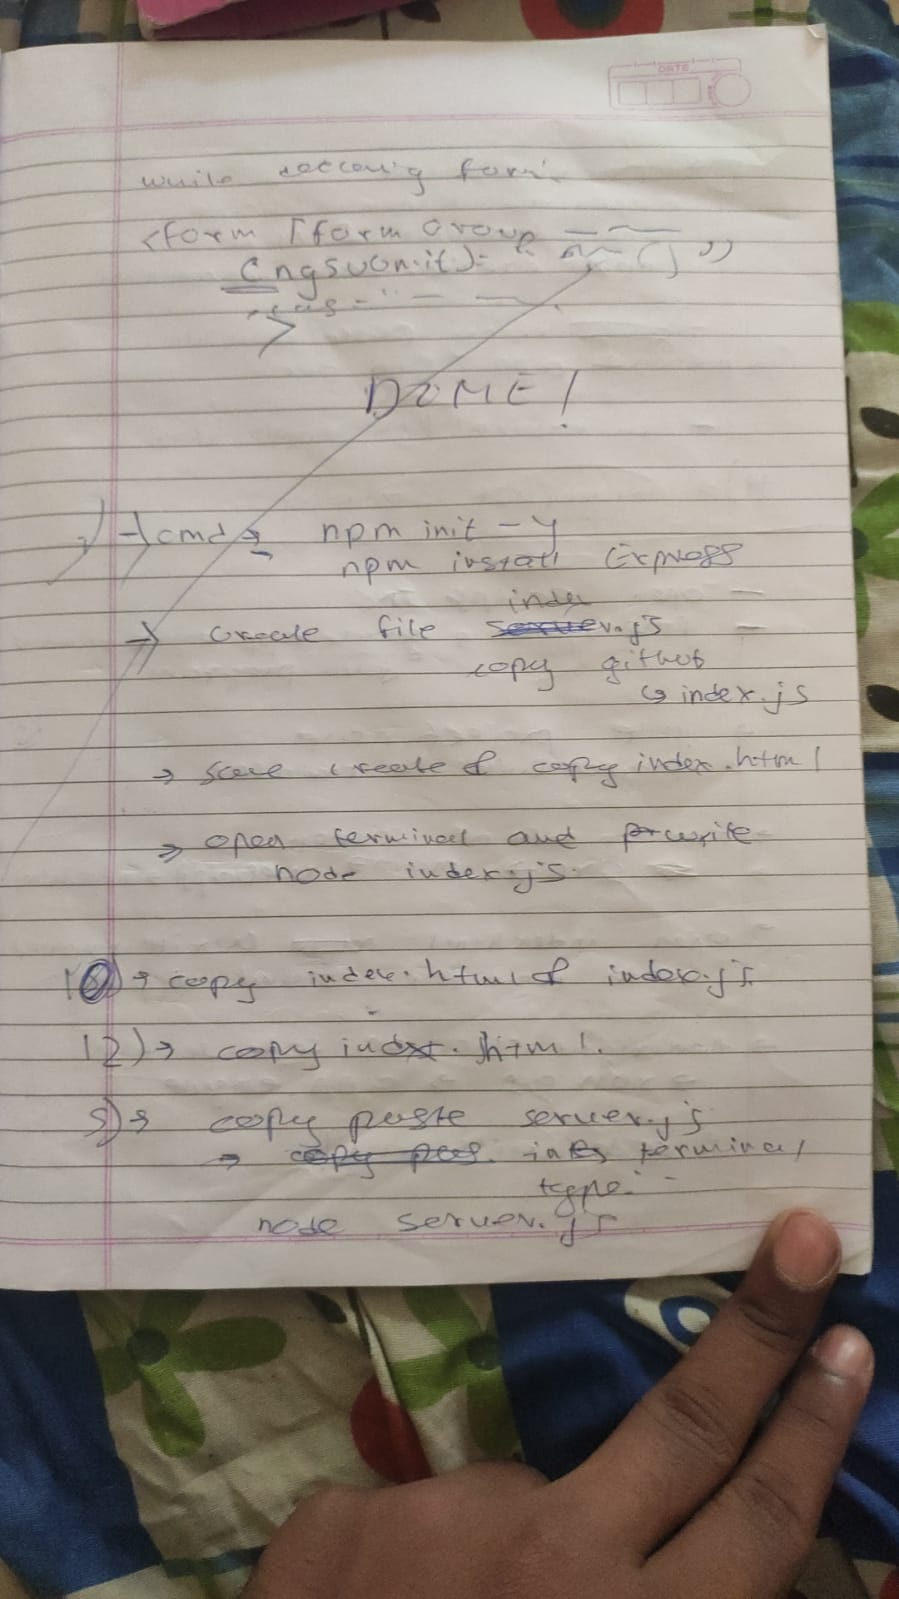 DATE
while form
<form [form Group
(ngSubmit)= " () "
>
DONE!
7) → cmd → npm init -y
npm install Express
index
→ create file server.js
copy github
↳ index.js
→ create & copy index.html
→ open terminal and write
node index.js
10) → copy index.html & index.js
12) → copy index.html.
5) → copy paste server.js
→ copy pas. into terminal
type:-
node server.js